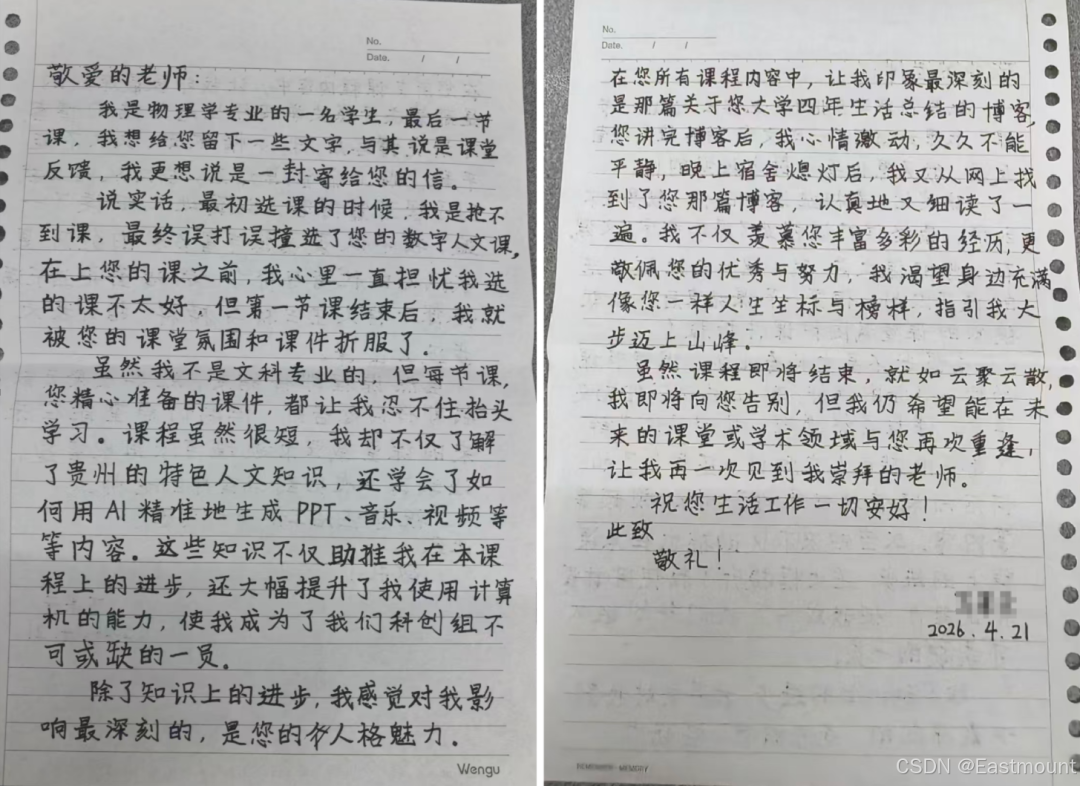 No.
Date. / /
敬爱的老师：
我是物理学专业的一名学生，最后一节
课，我想给您留下一些文字，与其说是课堂
反馈，我更想说是一封寄给您的信。
说实话，最初选课的时候，我是抢不
到课，最终误打误撞进了您的数字人文课，
在上您的课之前，我心里一直担忧我选
的课不太好，但第一节课结束后，我就
被您的课堂氛围和课件折服了．
虽然我不是文科专业的，但每节课，
您精心准备的课件，都让我忍不住抬头
学习。课程虽然很短，我却不仅了解
了贵州的特色人文知识，还学会了如
何用AI精准地生成PPT、音乐、视频等
等内容。这些知识不仅助推我在本课
程上的进步，还大幅提升了我使用计算
机的能力，使我成为了我们科创组不
可或缺的一员。
除了知识上的进步，我感觉对我影
响最深刻的，是您的个人格魅力．
Wengu
No.
Date. / /
在您所有课程内容中，让我印象最深刻的
是那篇关于您大学四年生活总结的博客，
您讲完博客后，我心情激动，久久不能
平静，晚上宿舍熄灯后，我又从网上找
到了您那篇博客，认真地又细读了一
遍。我不仅羡慕您丰富多彩的经历，更
敬佩您的优秀与努力，我渴望身边充满
像您一样人生坐标与榜样，指引我大
步迈上山峰．
虽然课程即将结束，就如云聚云散，
我即将向您告别，但我仍希望能在未
来的课堂或学术领域与您再次重逢，
让我再一次见到我崇拜的老师。
祝您生活工作一切安好！
此致
敬礼！
2026.4.21
REMEMBER MEMORY
CSDN @Eastmount